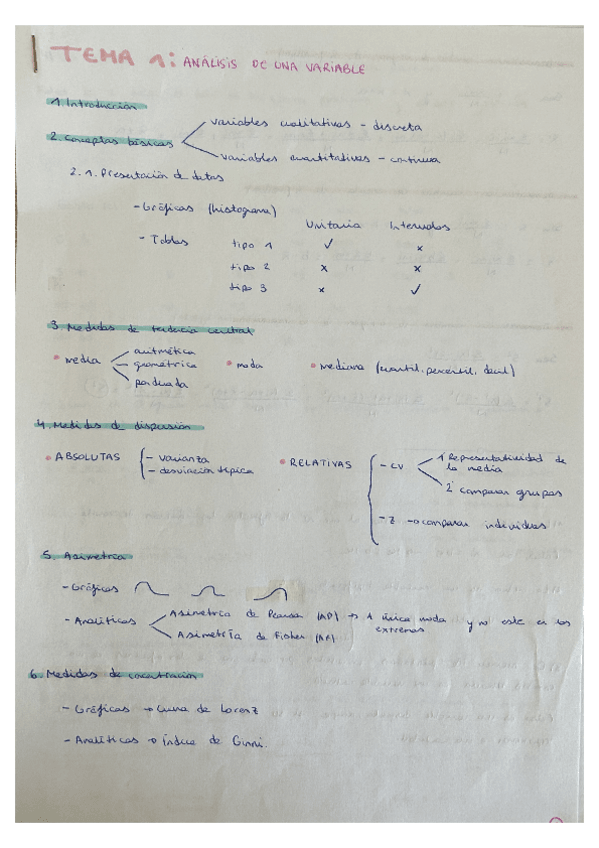 TEMA 1: ANÁLISIS DE UNA VARIABLE
1. Introducción
2. Conceptos básicos
variables cualitativas - discreta
variables cuantitativas - continua
2.1. Presentación de datos
- Gráficas (histograma)
Unitaria Intervalos
- Tablas tipo 1 ✓ x
tipo 2 x x
tipo 3 x ✓
3. Medidas de tendencia central
• media aritmética
geométrica
ponderada
• moda
• mediana (cuartil, percentil, decil)
4. Medidas de dispersión
• ABSOLUTAS - varianza
- desviación típica
• RELATIVAS - CV 1 Representatividad de
la media
2 comparar grupos
- Z → comparar individuos
5. Asimetría
- Gráficas
- Analíticas Asimetría de Pearson (AP) → 1 única moda y no este en los
extremos
Asimetría de Fisher (AF)
6. Medidas de concentración
- Gráficas → Curva de Lorenz
- Analíticas → Índice de Ginni.